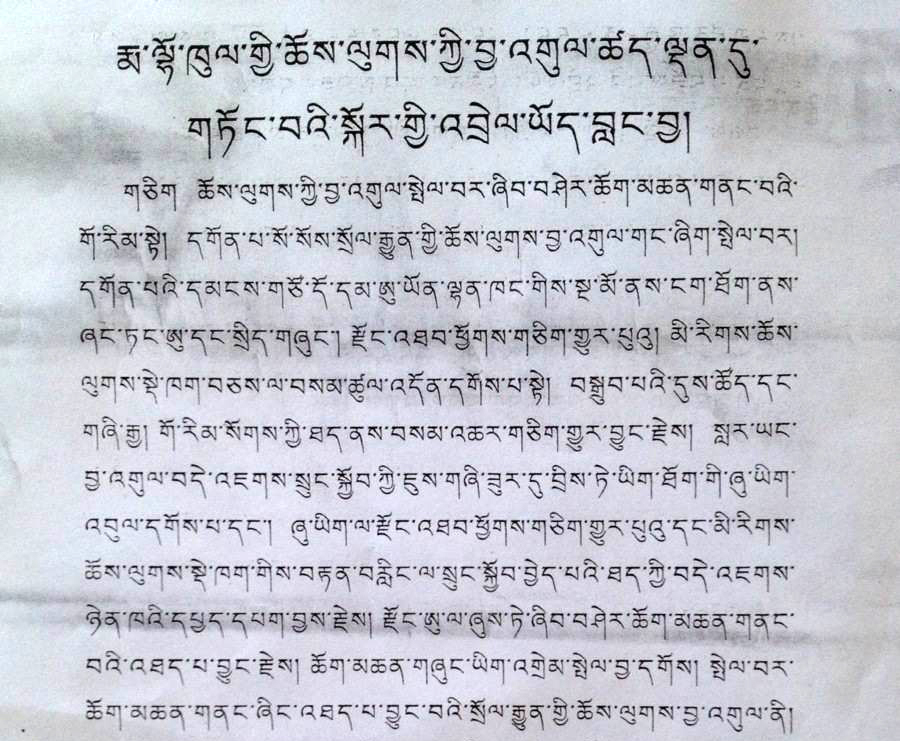 རྨ་ལྷོ་ཁུལ་གྱི་ཆོས་ལུགས་ཀྱི་བྱ་འགུལ་ཚད་ལྡན་དུ་
གཏོང་བའི་སྐོར་གྱི་འབྲེལ་ཡོད་བླང་བྱ།
གཅིག ཆོས་ལུགས་ཀྱི་བྱ་འགུལ་སྤེལ་བར་ཞིབ་བཤེར་ཆོག་མཆན་གནང་བའི་
གོ་རིམ་སྟེ། དགོན་པ་སོ་སོས་སྲོལ་རྒྱུན་གྱི་ཆོས་ལུགས་བྱ་འགུལ་གང་ཞིག་སྤེལ་བར།
དགོན་པའི་དམངས་གཙོ་དོ་དམ་ཨུ་ཡོན་ལྷན་ཁང་གིས་སྔ་མོ་ནས་ངག་ཐོག་ནས་
ཞང་ཏང་ཨུ་དང་སྲིད་གཞུང་། རྫོང་འཐབ་ཕྱོགས་གཅིག་གྱུར་པུའུ། མི་རིགས་ཆོས་
ལུགས་སྡེ་ཁག་བཅས་ལ་བསམ་ཚུལ་འདོན་དགོས་པ་སྟེ། བསྒྲུབ་པའི་དུས་ཚོད་དང་
གཞི་རྒྱ། གོ་རིམ་སོགས་ཀྱི་ཐད་ནས་བསམ་འཆར་གཅིག་གྱུར་བྱུང་རྗེས། སླར་ཡང་
བྱ་འགུལ་བདེ་འཇགས་སྲུང་སྐྱོབ་ཀྱི་ཇུས་གཞི་ཟུར་དུ་བྲིས་ཏེ་ཡིག་ཐོག་གི་ཞུ་ཡིག་
འབུལ་དགོས་པ་དང་། ཞུ་ཡིག་ལ་རྫོང་འཐབ་ཕྱོགས་གཅིག་གྱུར་པུའུ་དང་མི་རིགས་
ཆོས་ལུགས་སྡེ་ཁག་གིས་བརྟན་བརླིང་ལ་སྲུང་སྐྱོབ་བྱེད་པའི་ཐད་ཀྱི་བདེ་འཇགས་
ཉེན་ཁའི་དཔྱད་དཔག་བྱས་རྗེས། རྫོང་ཨུ་ལ་ཞུས་ཏེ་ཞིབ་བཤེར་ཆོག་མཆན་གནང་
བའི་འཐད་པ་བྱུང་རྗེས། ཆོག་མཆན་གཞུང་ཡིག་འགྲེམ་སྤེལ་བྱ་དགོས། སྤེལ་བར་
ཆོག་མཆན་གནང་ཞིང་འཐད་པ་བྱུང་བའི་སྲོལ་རྒྱུན་གྱི་ཆོས་ལུགས་བྱ་འགུལ་ནི།